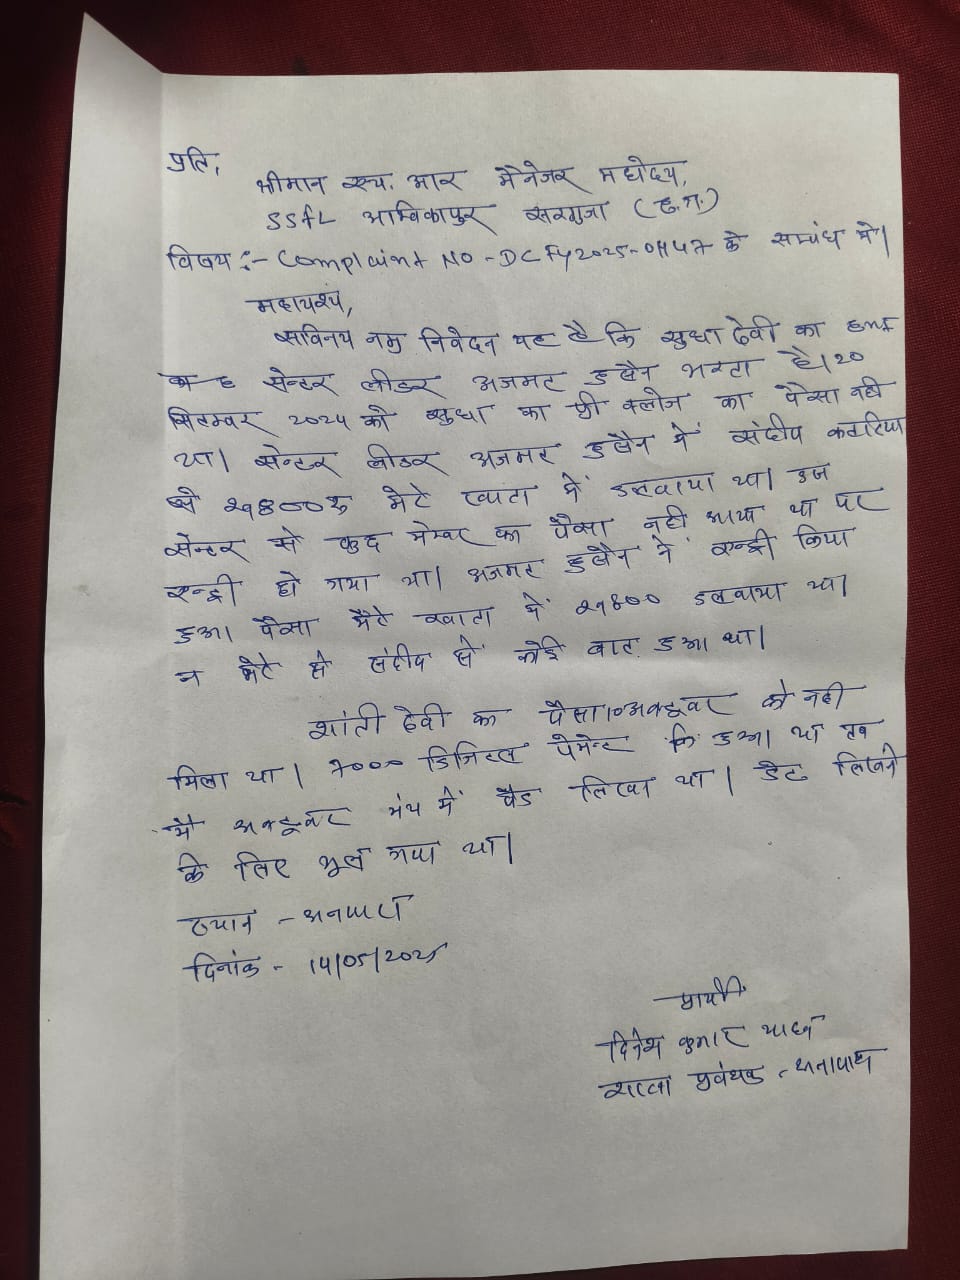 प्रति,
श्रीमान एच. आर मैनेजर महोदय,
SSFL अम्बिकापुर सरगुजा (छ.ग.)
विषय :- Complaint No - DCFY2025-0447 के सम्बंध में।
महाशय,
सविनय नम्र निवेदन यह है कि सुधा देवी का EMI
सेन्टर लीडर अजमत हुसैन भरता है। 20
सितम्बर 2024 को सुधा का प्री क्लोज का पैसा नही
था। सेन्टर लीडर अजमत हुसैन में संदीप
से रु मेरे खाता में डलवाया था। उस
सेन्टर से कुछ मेम्बर का पैसा नही आया था पर
एन्ट्री हो गया था। अजमत हुसैन में एन्ट्री किया
हुआ पैसा मेरे खाता में डलवाया था।
न मेरे से संदीप से कोई बात हुआ था।
शांती देवी का पैसा 10 अक्टूबर को नही
मिला था। 7000 डिजिटल पेमेन्ट कि हुआ था तब
मै अक्टूबर मंथ में पैड लिखा था। डेट लिखने
के लिए भूल गया था।
स्थान -
दिनांक - 14/05/2025
प्रार्थी
दिनेश कुमार यादव
शाखा प्रबंधक -